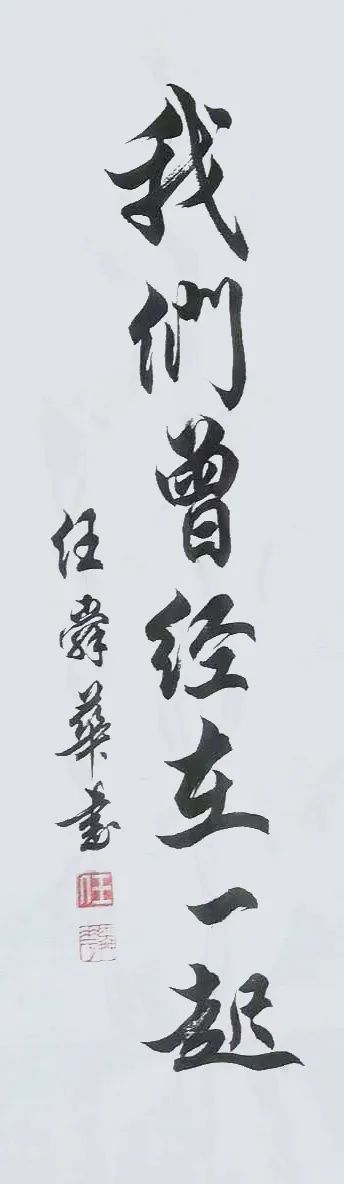 我們曾经在一起
任舜華书
任